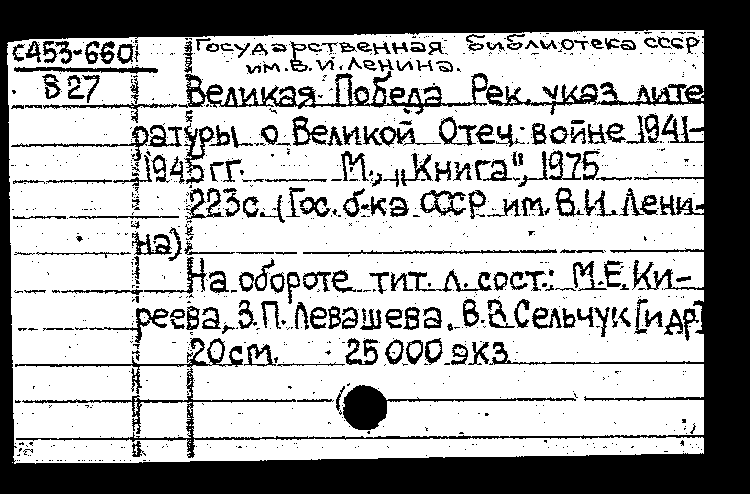 с453-660
В27
Государственная библиотека СССР
им. В. И. Ленина.
Великая Победа Рек. указ лите
ратуры о Великой Отеч. войне 1941-
1945 гг. М., „Книга", 1975
223с. (Гос. б-ка СССР им. В.И. Лени-
на).
На обороте тит. л. сост.: М.Е. Ки-
реева, З.П. Левашева, В.В Сельчук [и др]
20см. 25000 экз